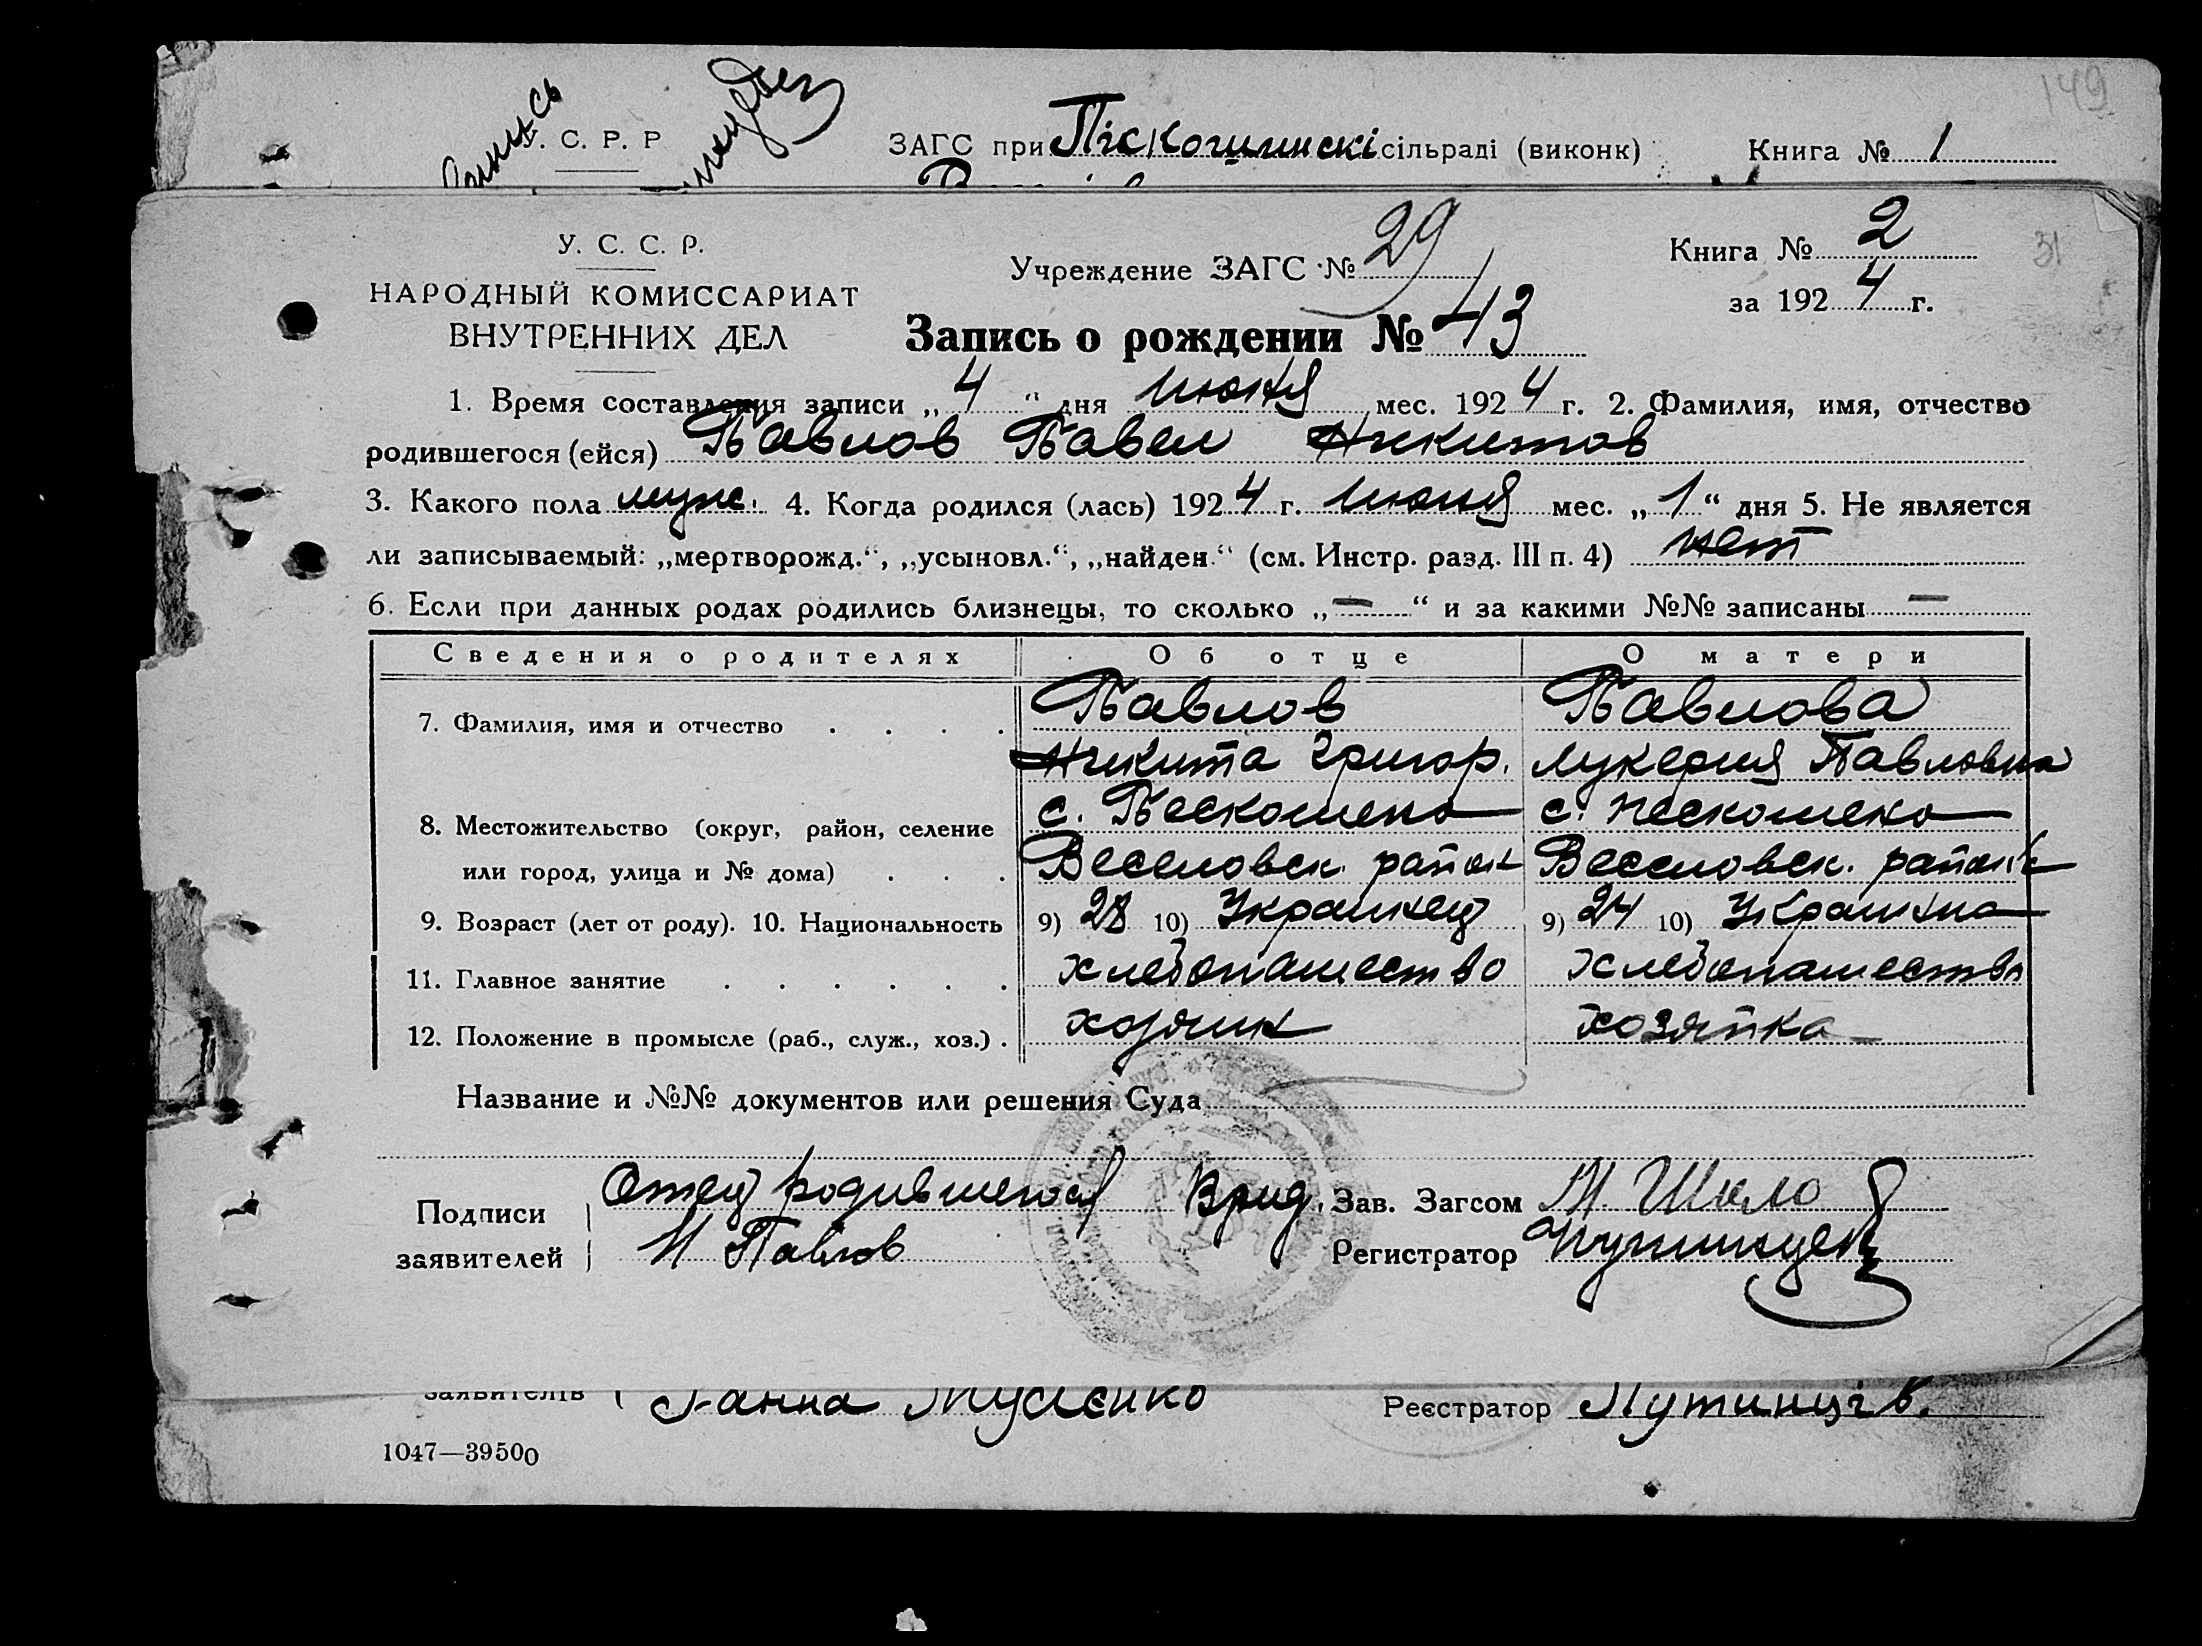 149
У. С. Р. Р
ЗАГС при Піскошинскі сільраді (виконк) Книга № 1
У. С. С. Р.
НАРОДНЫЙ КОМИССАРИАТ
ВНУТРЕННИХ ДЕЛ
Учреждение ЗАГС № 29
Книга № 2
31
за 1924 г.
Запись о рождении № 43
1. Время составления записи „4“ дня июня мес. 1924 г. 2. Фамилия, имя, отчество
родившегося (ейся) Павлов Павел Никитов
3. Какого пола муж. 4. Когда родился (лась) 1924 г. июня мес. „1“ дня 5. Не является
ли записываемый: „мертворожд.“, „усыновл.“, „найден.“ (см. Инстр. разд. III п. 4) нет
6. Если при данных родах родились близнецы, то сколько „—“ и за какими №№ записаны —
Сведения о родителях Об отце О матери
7. Фамилия, имя и отчество . . . . Павлов Павлова
Никита Григор. Лукерия Павловна
8. Местожительство (округ, район, селение с. Пескошено с. Пескошено
или город, улица и № дома) . . . Веселовск. район Веселовск. район
9. Возраст (лет от роду). 10. Национальность 9) 28 10) Украинец 9) 24 10) Украинка
11. Главное занятие . . . . . . хлебопашество хлебопашество
12. Положение в промысле (раб., служ., хоз.) . хозяин хозяйка
Название и №№ документов или решения Суда
Подписи Отец родившегося Врид. Зав. Загсом Шило
заявителей Н Павлов Регистратор
заявителів Ганна Реєстратор Путинців.
1047—39500